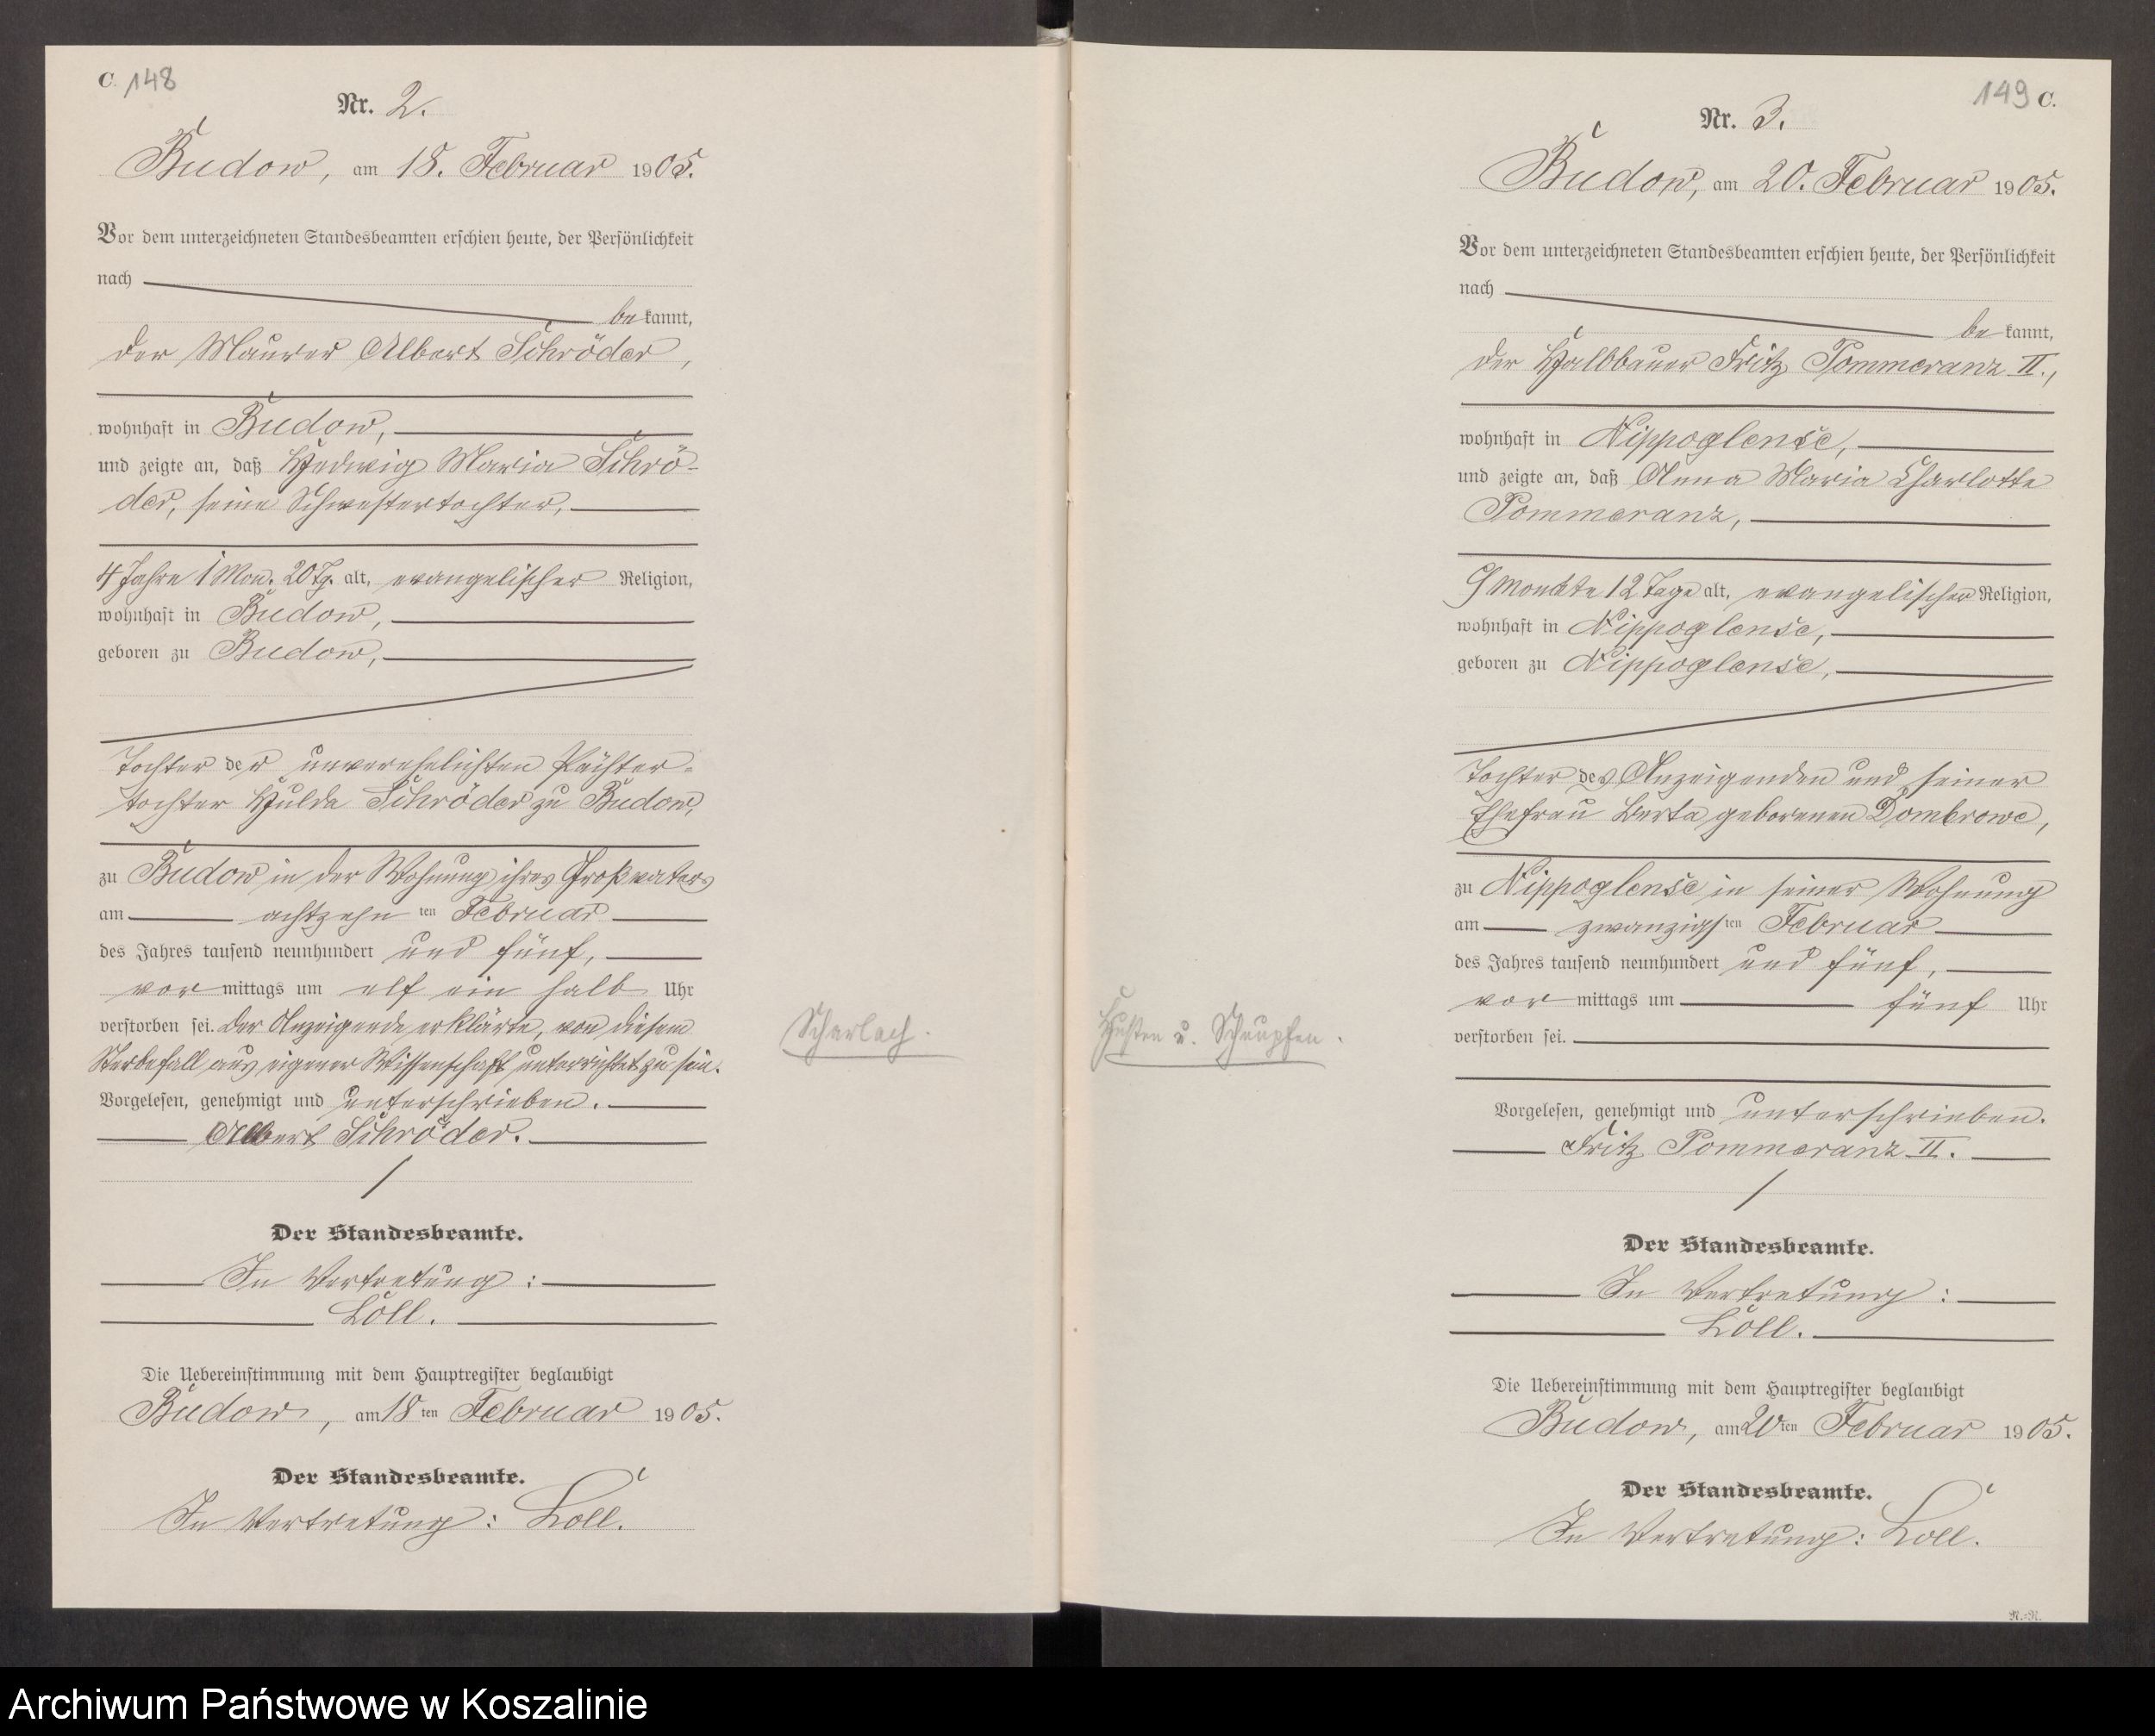 C. 148
Nr. 2.
Budow, am 18. Februar 1905.
Vor dem unterzeichneten Standesbeamten erschien heute, der Persönlichkeit
nach
be kannt,
der Maurer Albert Schröder,
wohnhaft in Budow,
und zeigte an, daß Hedwig Maria Schrö-
der, seine Schwestertochter,
4 Jahre 1 Mon. 20 Tg. alt, evangelischer Religion,
wohnhaft in Budow,
geboren zu Budow,
Tochter der unverehelichten Pächter-
tochter Hulda Schröder zu Budow,
zu Budow in der Wohnung ihres Großvaters
am achtzehn ten Februar
des Jahres tausend neunhundert und fünf,
vor mittags um elf ein halb Uhr
verstorben sei. Der Anzeigende erklärte, von diesem
Sterbefall aus eigener Wissenschaft unterrichtet zu sein.
Vorgelesen, genehmigt und unterschrieben.
Albert Schröder.
Der Standesbeamte.
In Vertretung:
Loll.
Die Uebereinstimmung mit dem Hauptregister beglaubigt
Budow, am 18 ten Februar 1905.
Der Standesbeamte.
In Vertretung: Loll.
Scharlach.
149 C.
Nr. 3.
Budow, am 20. Februar 1905.
Vor dem unterzeichneten Standesbeamten erschien heute, der Persönlichkeit
nach
be kannt,
der Halbbauer Fritz Pommeranz II.,
wohnhaft in Nippoglense,
und zeigte an, daß Anna Maria Charlotte
Pommeranz,
9 Monate 12 Tage alt, evangelischer Religion,
wohnhaft in Nippoglense,
geboren zu Nippoglense,
Tochter des Anzeigenden und seiner
Ehefrau Berta geborenen Dombrowe,
zu Nippoglense in seiner Wohnung
am zwanzigsten Februar
des Jahres tausend neunhundert und fünf,
vor mittags um fünf Uhr
verstorben sei.
Husten u. Schnupfen.
Vorgelesen, genehmigt und unterschrieben.
Fritz Pommeranz II.
Der Standesbeamte.
In Vertretung:
Loll.
Die Uebereinstimmung mit dem Hauptregister beglaubigt
Budow, am 20 ten Februar 1905.
Der Standesbeamte.
In Vertretung: Loll.
N.-R.
Archiwum Państwowe w Koszalinie